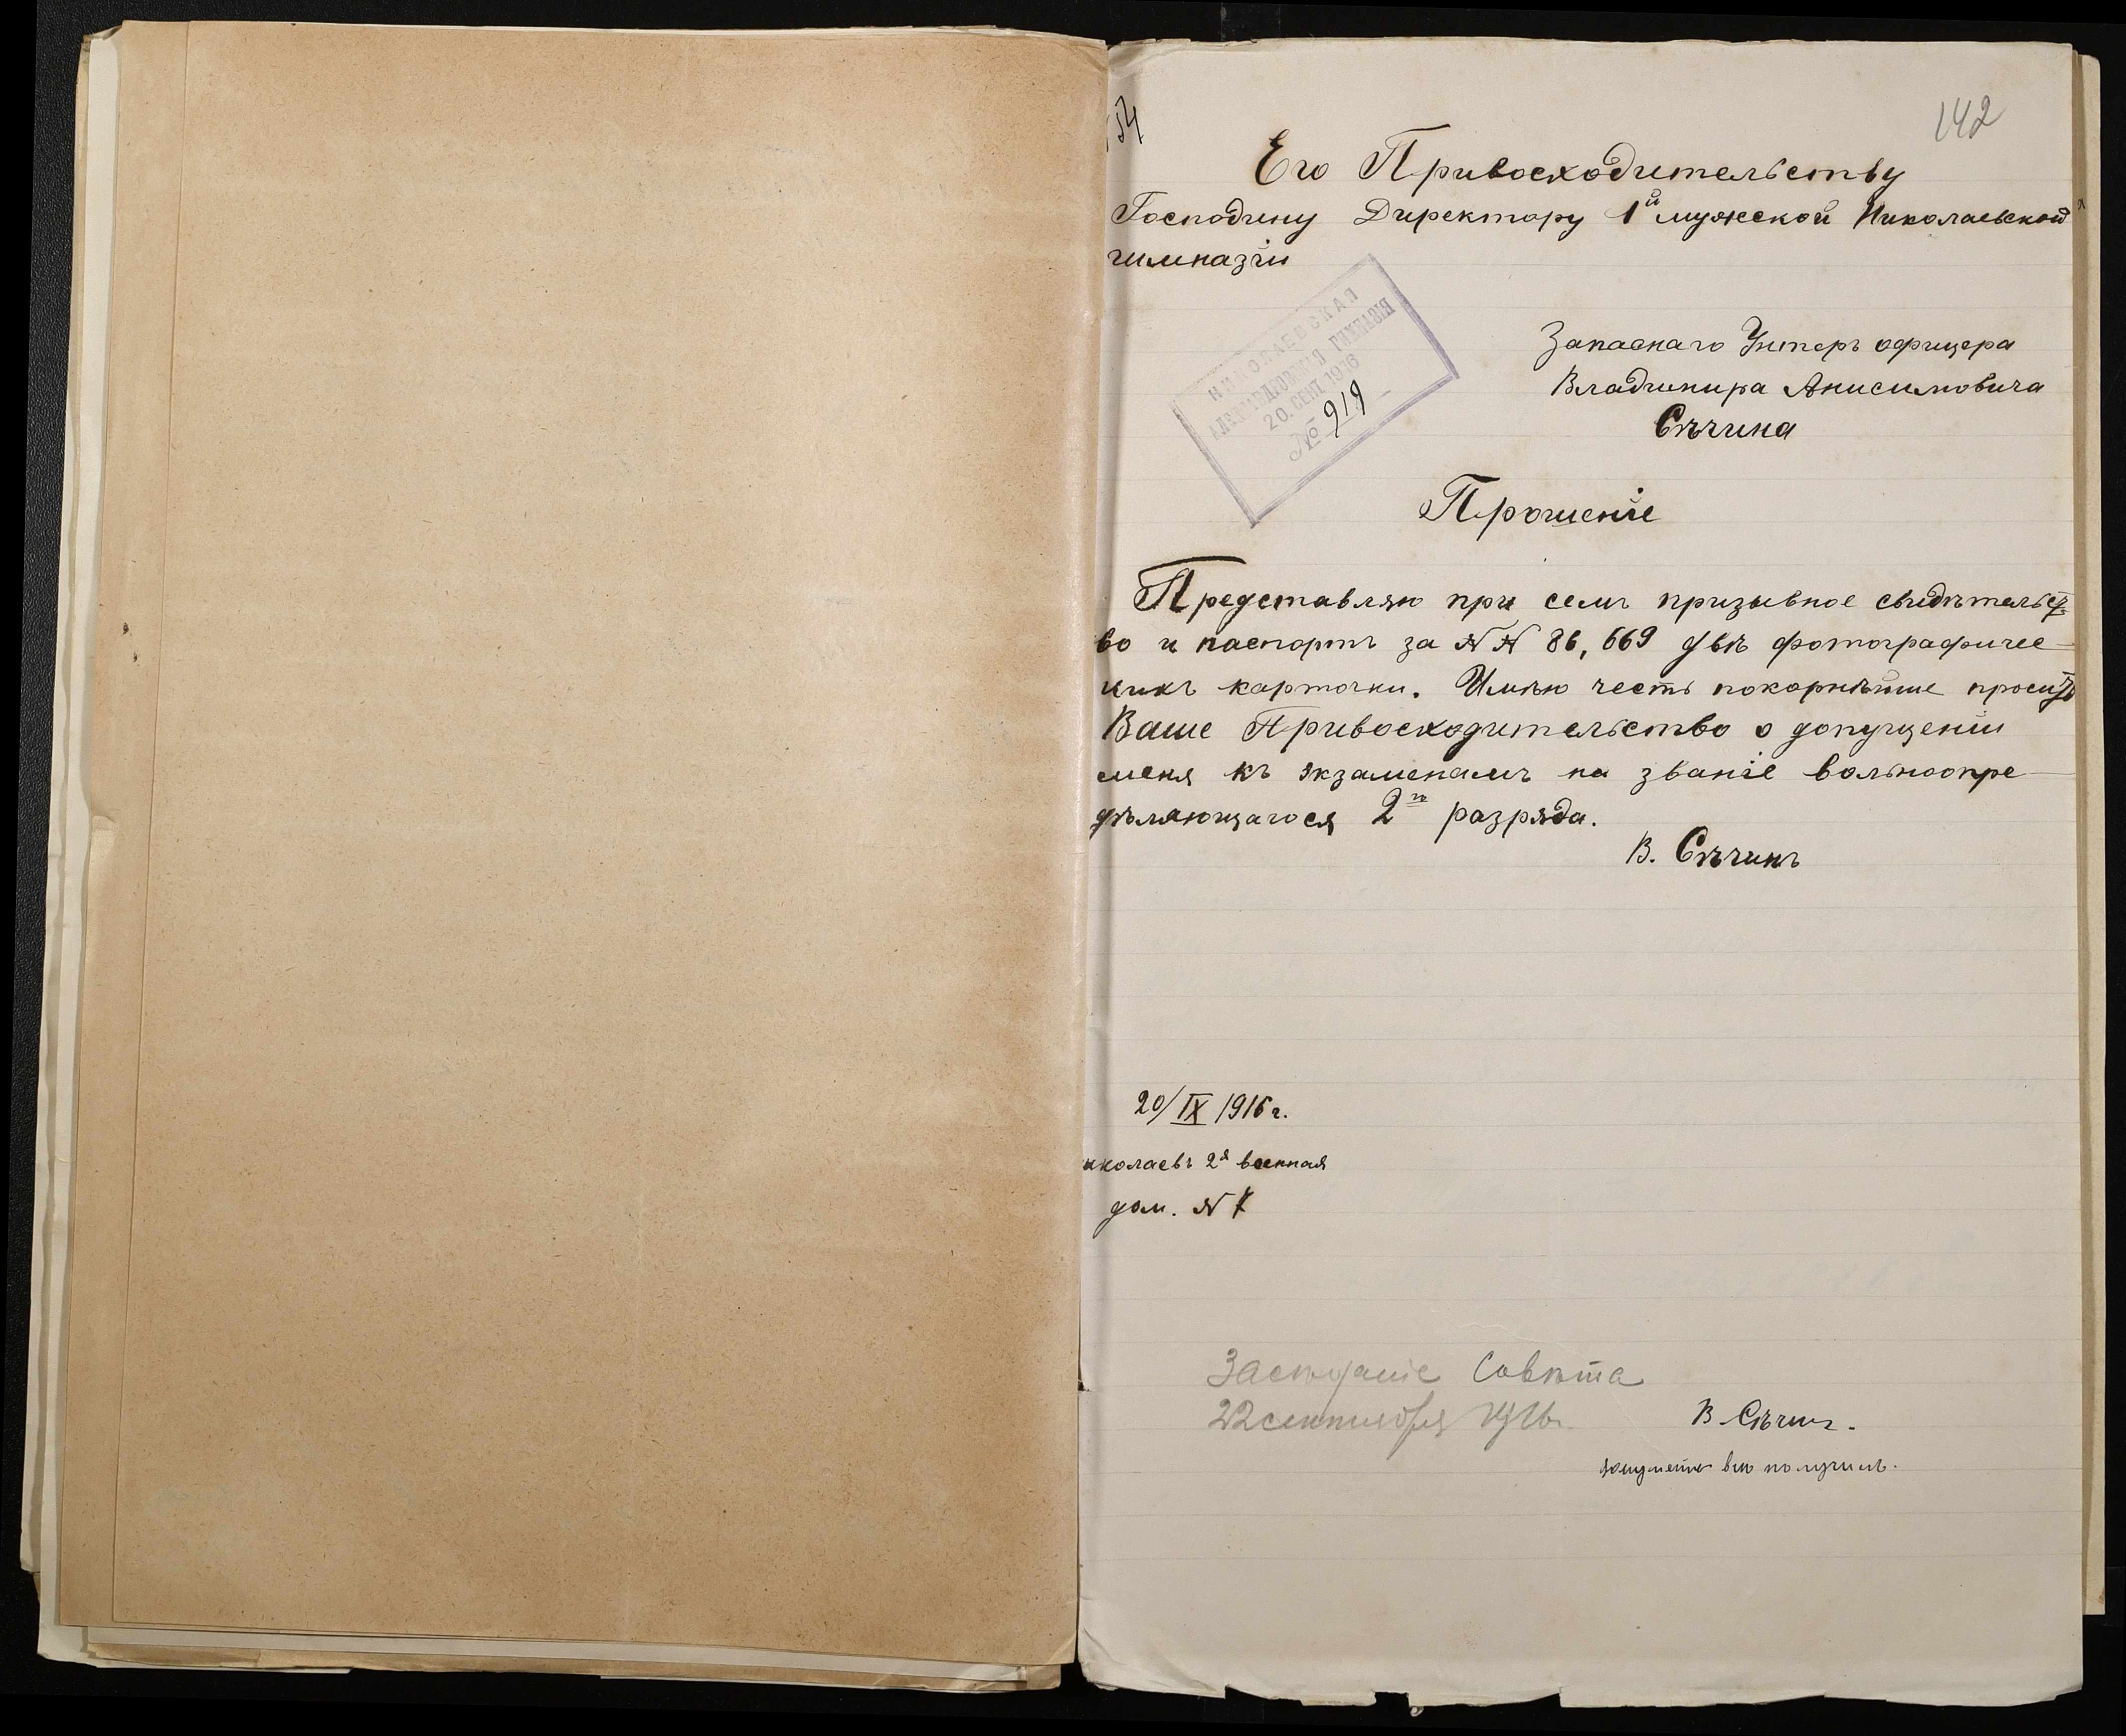 54
142
Его Привосходительству
Господину Директору 1й мужской Николаевской
гимназіи
НИКОЛАЕВСКАЯ
АЛЕКСАНДРОВСКАЯ ГИМНАЗІЯ
20. СЕНТ. 1916
№ 919
Запаснаго Унтеръ офицера
Владимира Анисимовича
Сѣчина
Прошеніе
Представляю при семъ призывное свидѣтельст-
во и паспортъ за №№ 86, 669 двѣ фотографиче-
скихъ карточки. Имѣю честь покорнѣйше просить
Ваше Привосходительство о допущеніи
меня къ экзаменамъ на званіе вольноопре-
дѣляющагося 2го разряда.
В. Сѣчинъ
20/IX 1916 г.
иколаевъ 2я военная
дом. № 7
Засѣданіе Совѣта
22 сентября 1916г.
В. Сѣчинъ.
документы всѣ получилъ.